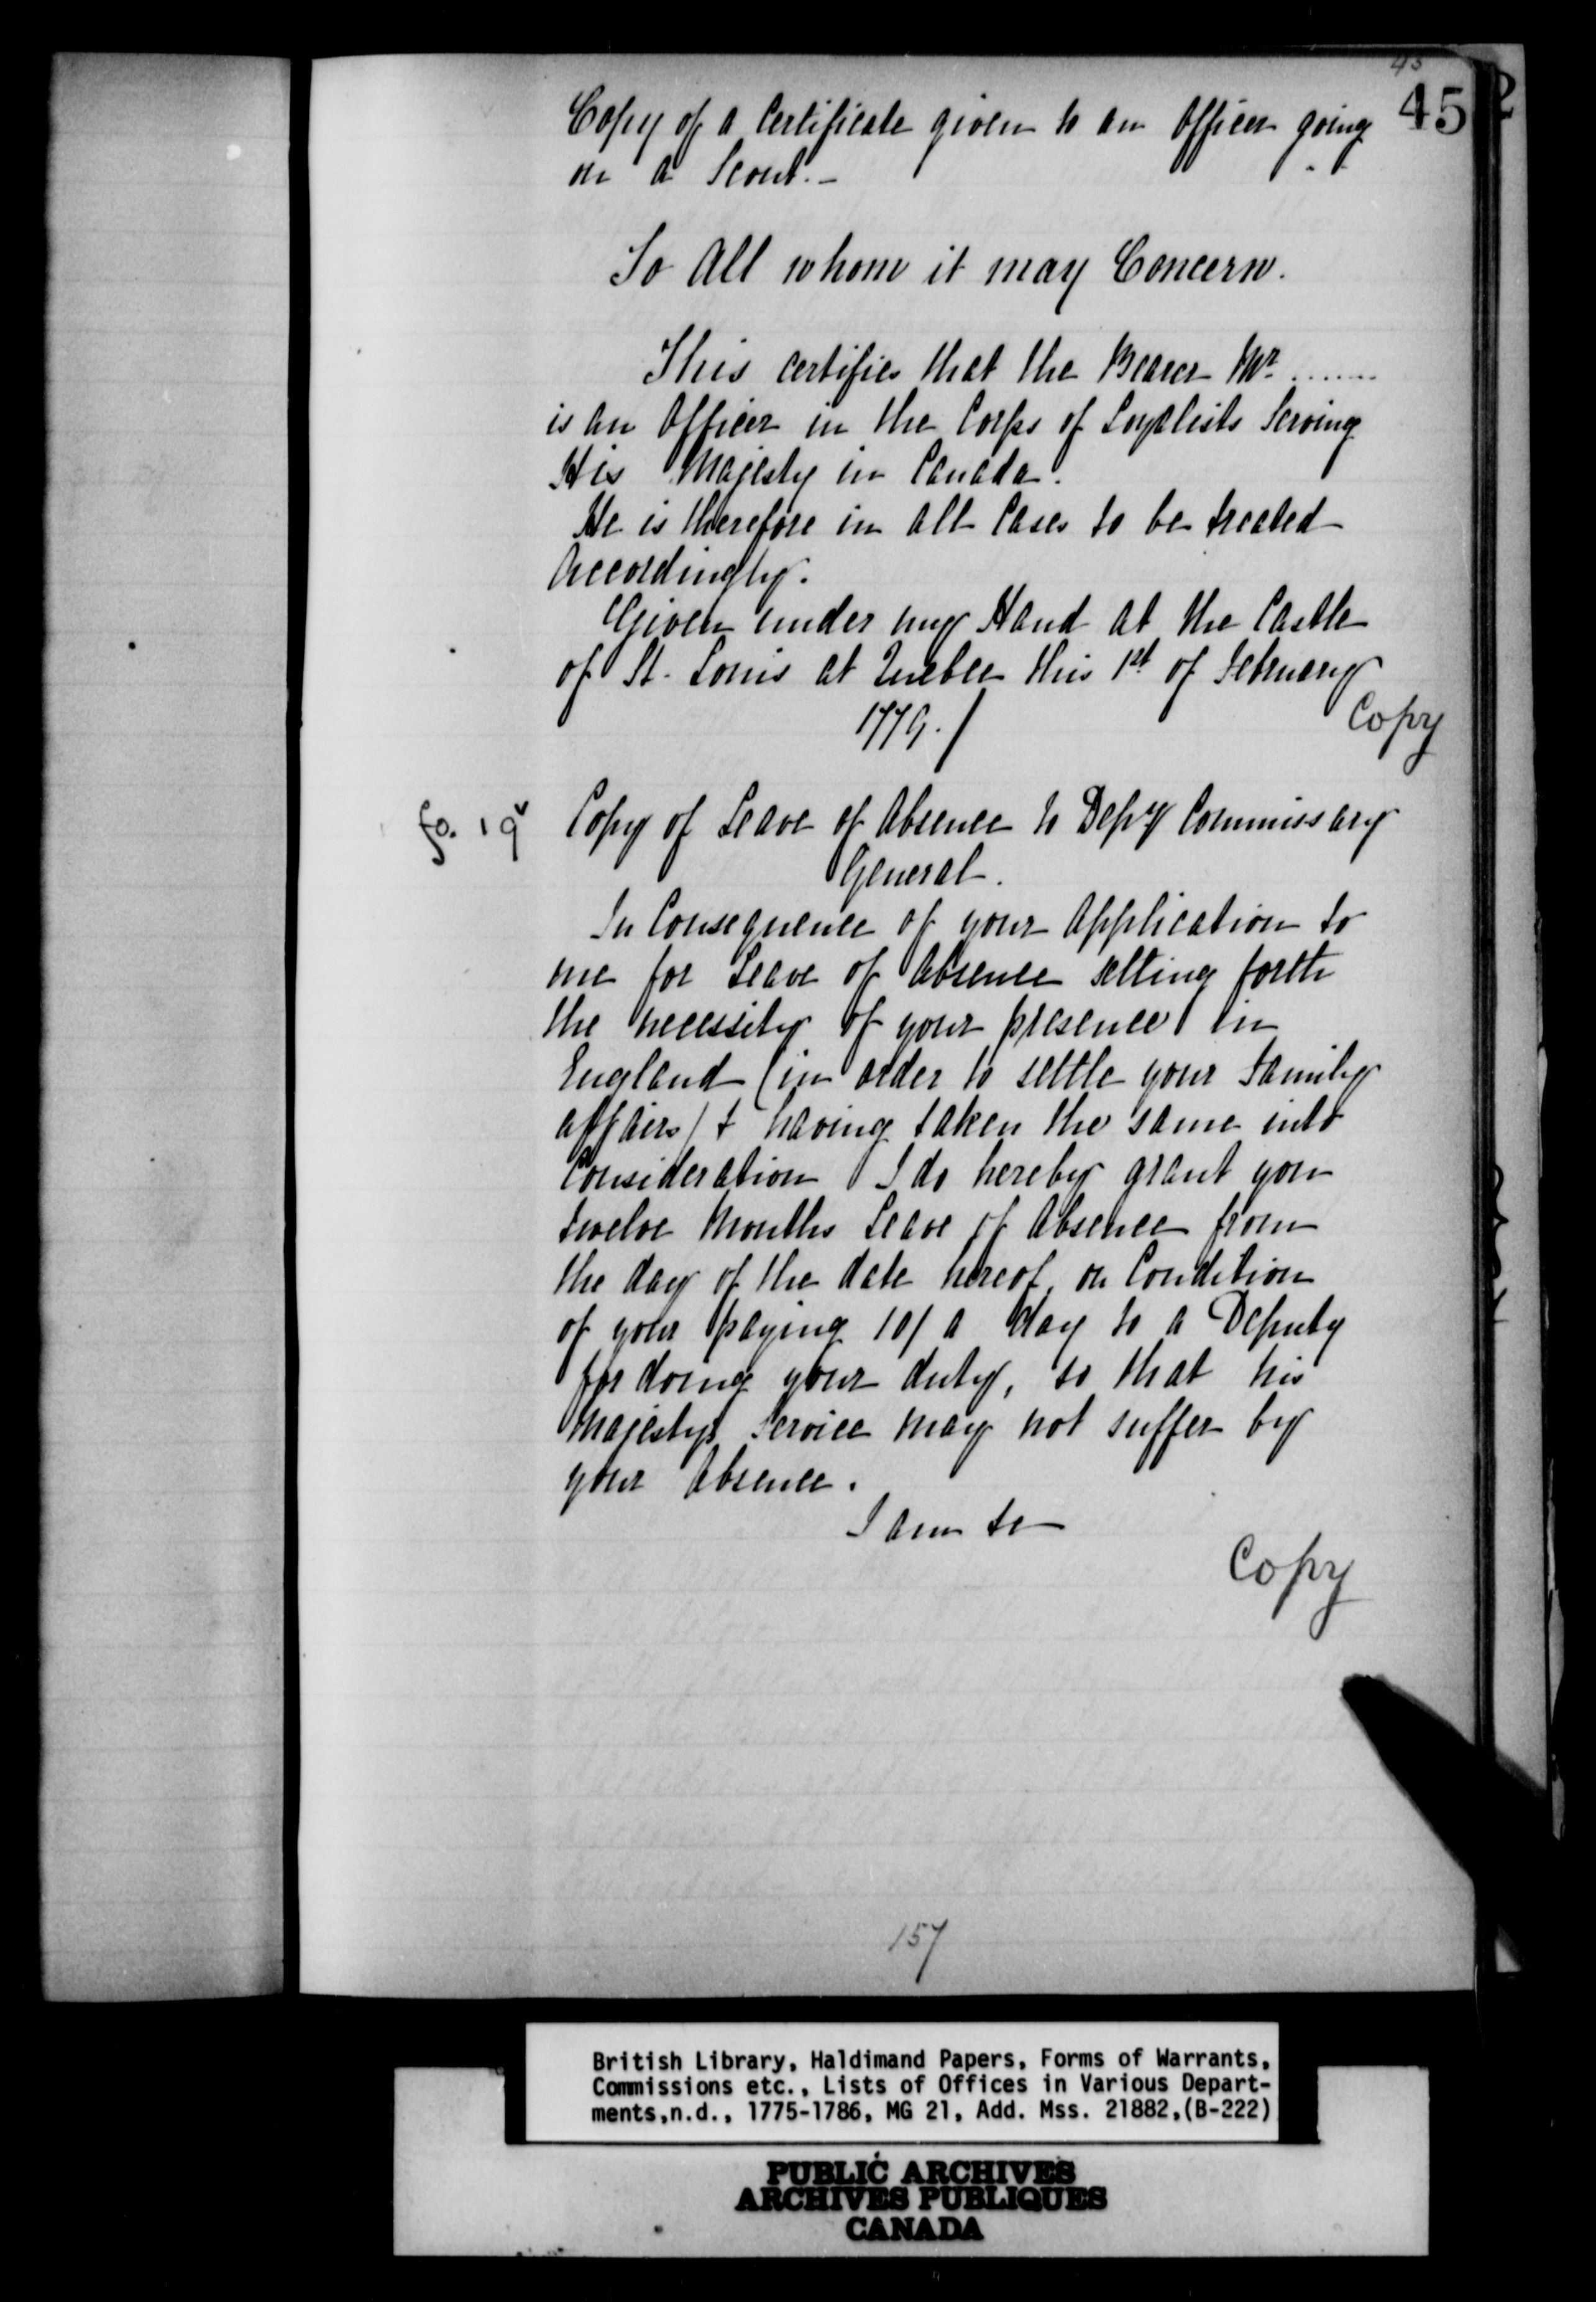 45
45
Copy of a Certificate given to an Officer going
on a Scout.-
To All whom it may Concern.
This certifies that the Bearer Mr. .......
is an Officer in the Corps of Loyalists Serving
His Majesty in Canada.
He is therefore in all Cases to be treated
Accordingly.
Given under my Hand at the Castle
of St. Louis at Quebec this 1st of February
1779./
Copy
fo. 19v
Copy of Leave of Absence to Depy Commissary
General.
In Consequence of your Application to
me for Leave of Absence setting forth
the necessity of your presence in
England (in order to settle your Family
affairs) & having taken the same into
Consideration I do hereby grant you
twelve Months Leave of Absence from
the day of the date hereof, on Condition
of your paying 10/ a day to a Deputy
for doing your duty, so that his
Majestys Service may not suffer by
your Absence.
I am &c
Copy
157
British Library, Haldimand Papers, Forms of Warrants,
Commissions etc., Lists of Offices in Various Depart-
ments,n.d., 1775-1786, MG 21, Add. Mss. 21882,(B-222)
PUBLIC ARCHIVES
ARCHIVES PUBLIQUES
CANADA